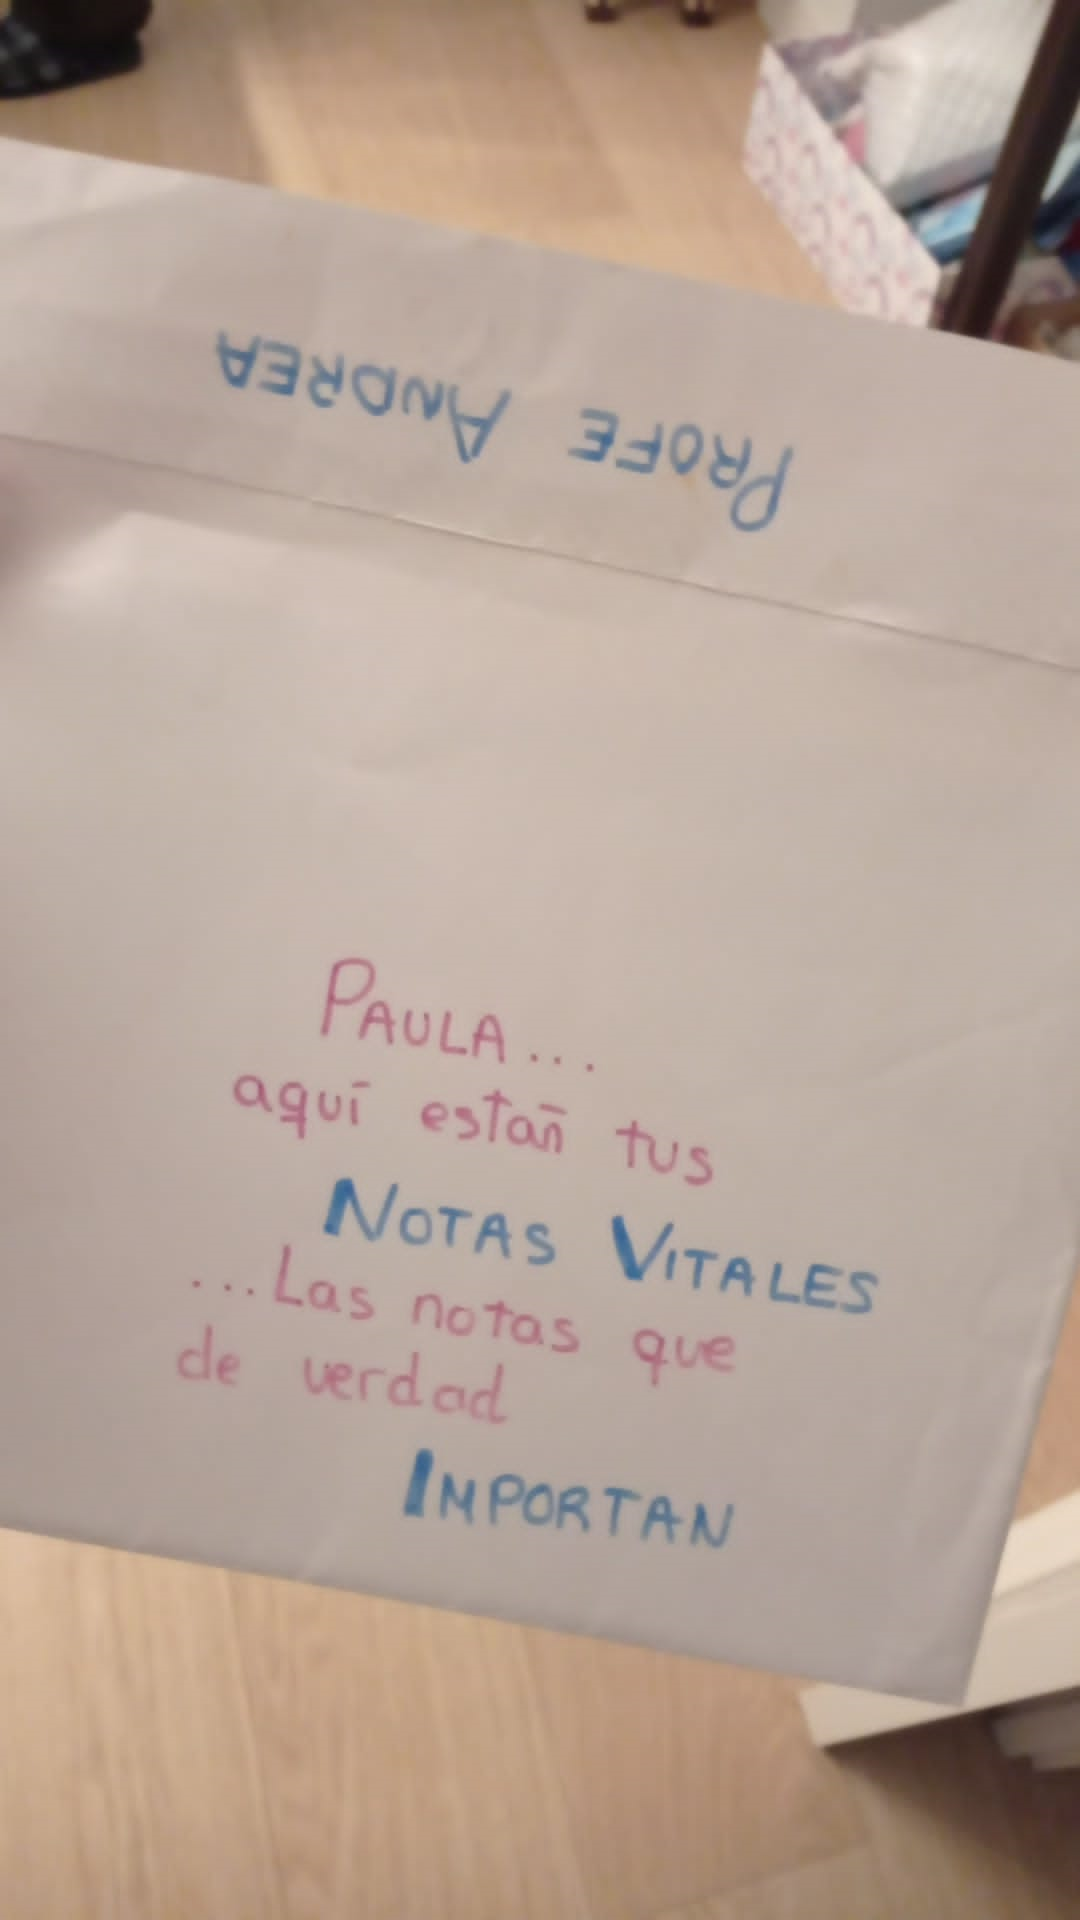 PROFE ANDREA
PAULA...
aquí están tus
NOTAS VITALES
...Las notas que
de verdad
IMPORTAN